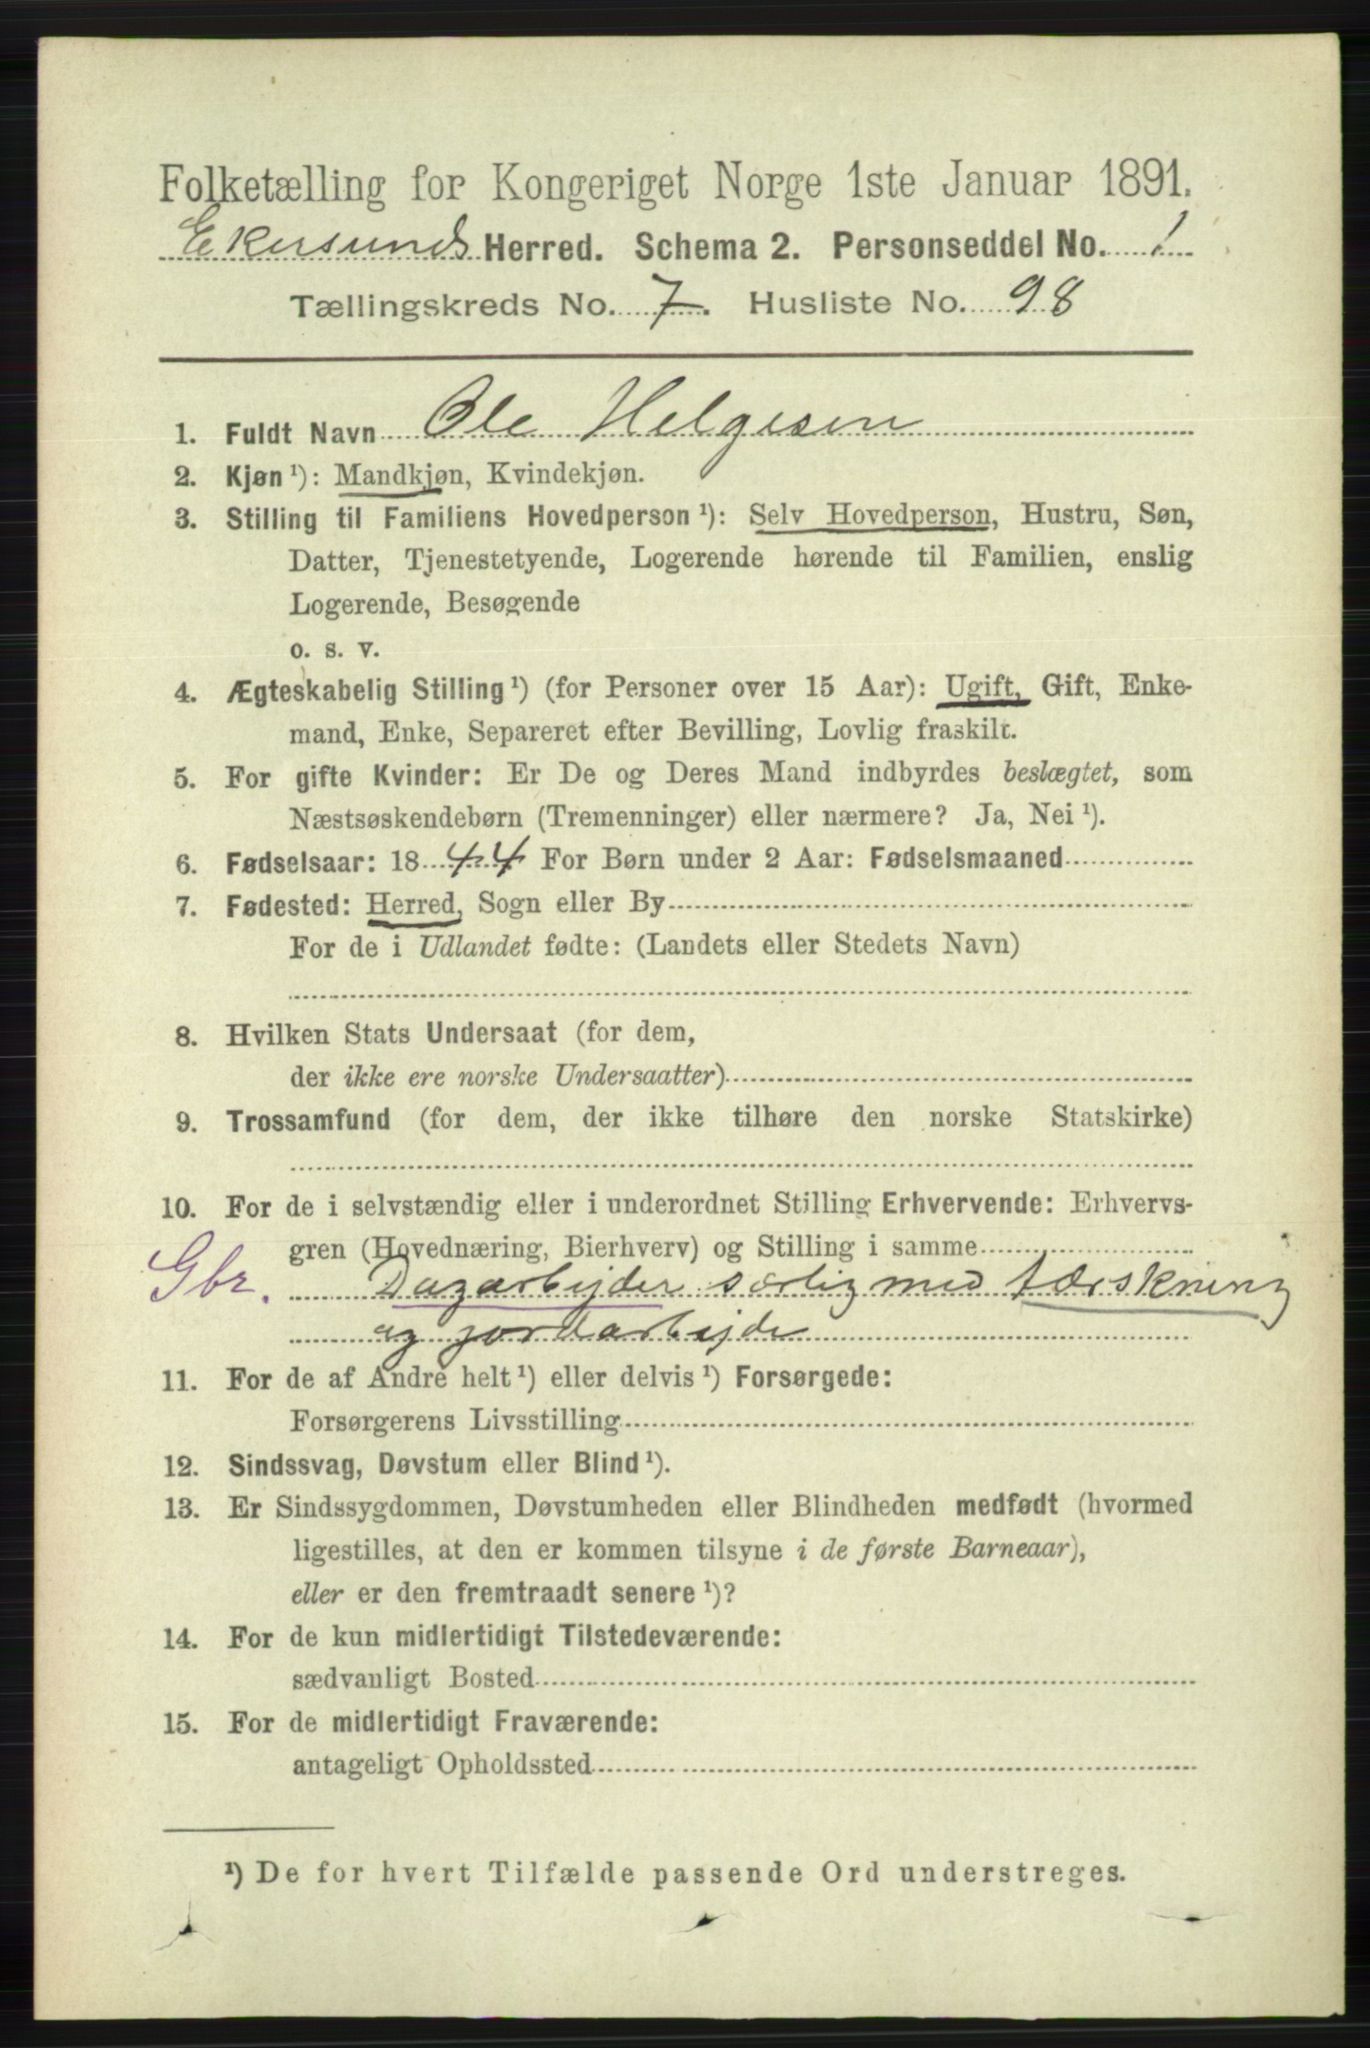 Folketælling for Kongeriget Norge 1ste Januar 1891.
Ekersunds Herred. Schema 2. Personseddel No. 1
Tællingskreds No. 7. Husliste No. 98
1. Fuldt Navn Ole Helgesen
2. Kjøn ¹): Mandkjøn, Kvindekjøn.
3. Stilling til Familiens Hovedperson ¹): Selv Hovedperson, Hustru, Søn,
Datter, Tjenestetyende, Logerende hørende til Familien, enslig
Logerende, Besøgende
o. s. v.
4. Ægteskabelig Stilling ¹) (for Personer over 15 Aar): Ugift, Gift, Enke-
mand, Enke, Separeret efter Bevilling, Lovlig fraskilt.
5. For gifte Kvinder: Er De og Deres Mand indbyrdes beslægtet, som
Næstsøskendebørn (Tremenninger) eller nærmere? Ja, Nei ¹).
6. Fødselsaar: 1844 For Børn under 2 Aar: Fødselsmaaned
7. Fødested: Herred, Sogn eller By
For de i Udlandet fødte: (Landets eller Stedets Navn)
8. Hvilken Stats Undersaat (for dem,
der ikke ere norske Undersaatter)
9. Trossamfund (for dem, der ikke tilhøre den norske Statskirke)
10. For de i selvstændig eller i underordnet Stilling Erhvervende: Erhvervs-
gren (Hovednæring, Bierhverv) og Stilling i samme
Gbr. Dagarbejder særlig med tærskning
og jordarbejde
11. For de af Andre helt ¹) eller delvis ¹) Forsørgede:
Forsørgerens Livsstilling
12. Sindssvag, Døvstum eller Blind ¹).
13. Er Sindssygdommen, Døvstumheden eller Blindheden medfødt (hvormed
ligestilles, at den er kommen tilsyne i de første Barneaar),
eller er den fremtraadt senere ¹)?
14. For de kun midlertidigt Tilstedeværende:
sædvanligt Bosted
15. For de midlertidigt Fraværende:
antageligt Opholdssted
¹) De for hvert Tilfælde passende Ord understreges.